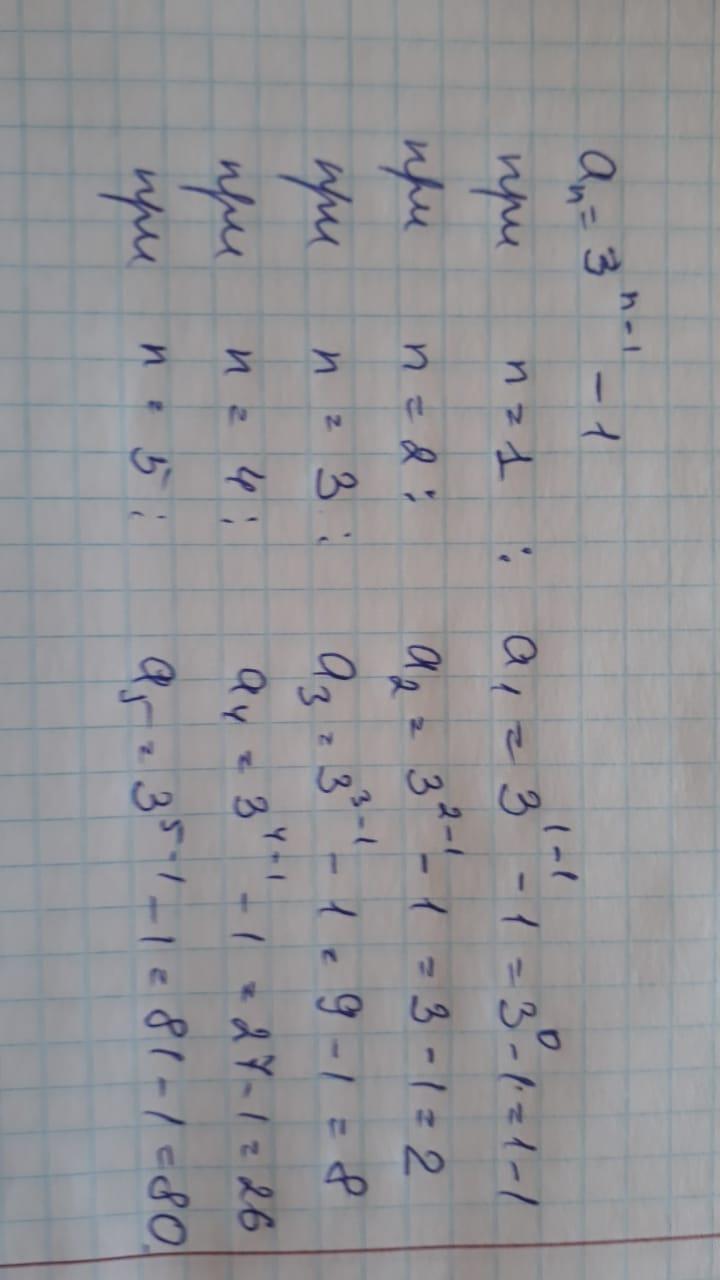 aₙ = 3ⁿ⁻¹ - 1
при n = 1 : a₁ = 3¹⁻¹ - 1 = 3⁰ - 1 = 1 - 1
при n = 2 : a₂ = 3²⁻¹ - 1 = 3 - 1 = 2
при n = 3 : a₃ = 3³⁻¹ - 1 = 9 - 1 = 8
при n = 4 : a₄ = 3⁴⁻¹ - 1 = 27 - 1 = 26
при n = 5 : a₅ = 3⁵⁻¹ - 1 = 81 - 1 = 80